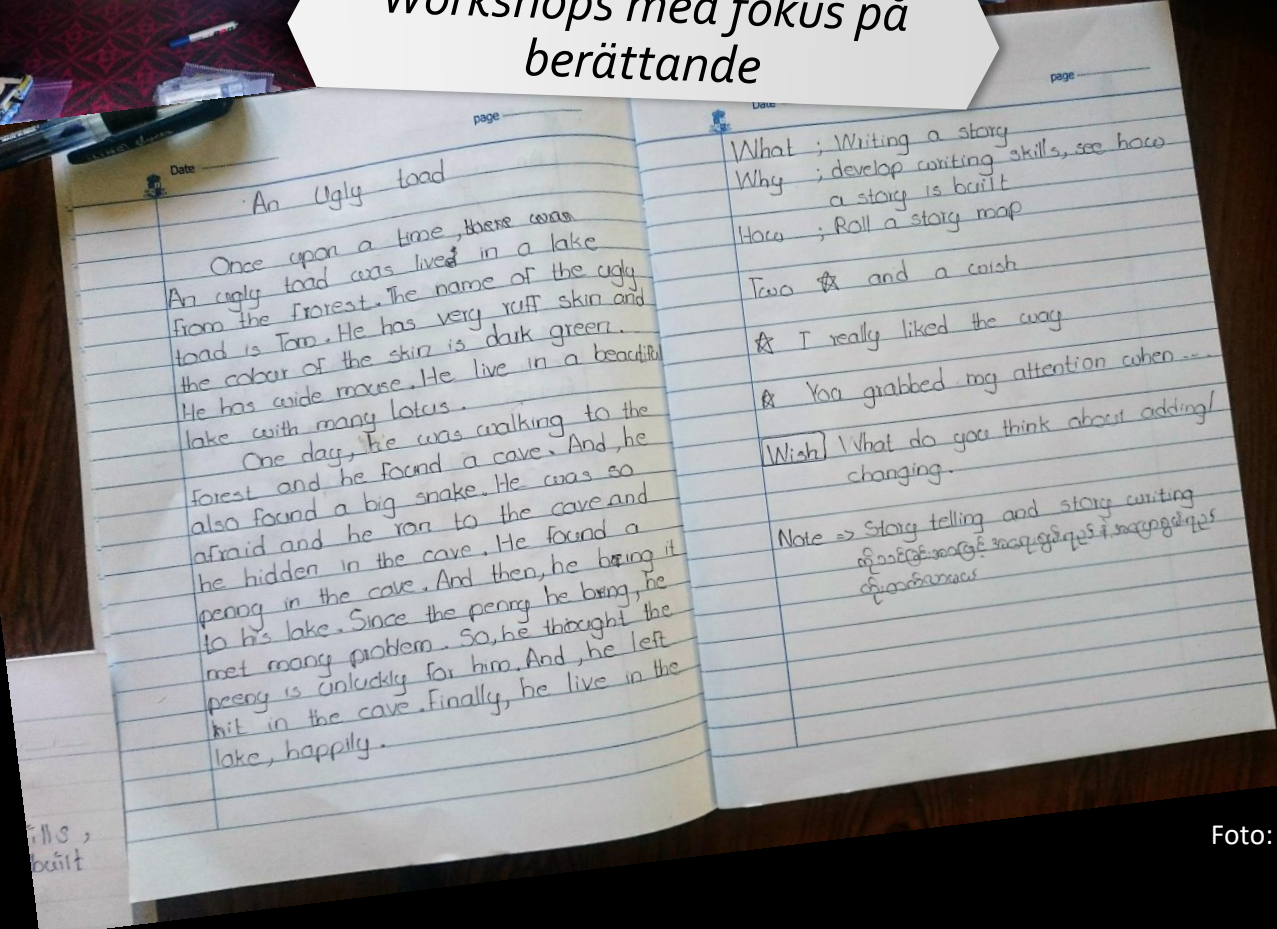 Workshops med fokus på
berättande
page
Date
An Ugly toad
Once upon a time, there was
An ugly toad was lived in a lake
from the frorest. The name of the ugly
toad is Tom. He has very ruff skin and
the colour of the skin is dark green.
He has wide mouse. He live in a beautiful
lake with many lotus.
One day, he was walking to the
forest and he found a cave. And, he
also found a big snake. He was so
afraid and he ran to the cave and
he hidden in the cave. He found a
penny in the cave. And then, he bring it
to his lake. Since the penny he bring, he
met many problem. So, he thought the
peeny is unluckly for him. And, he left
hit in the cave. Finally, he live in the
lake, happily.
page
Date
What ; Writing a story
Why ; develop writing skills, see how
a story is built
How ; Roll a story map
Two ☆ and a wish
☆ I really liked the way
☆ You grabbed my attention when ....
Wish What do you think about adding/
changing.
Note => Story telling and story writing
ills,
built
Foto: